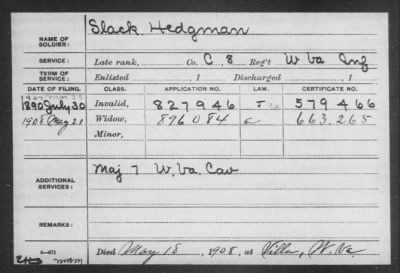 NAME OF SOLDIER: Slack Hedgman
SERVICE: Late rank, Co. C, 8 Reg't W Va Inf
TERM OF SERVICE: Enlisted , 1 Discharged , 1
DATE OF FILING. CLASS. APPLICATION NO. LAW. CERTIFICATE NO.
1890 July 30 Invalid, 827946 J 579466
1908 Widow, 896084 663.265
Minor,
ADDITIONAL SERVICES: Maj 7 W.Va. Cav
REMARKS:
Died May 18, 1908, at Villa, W.Va.
6-471